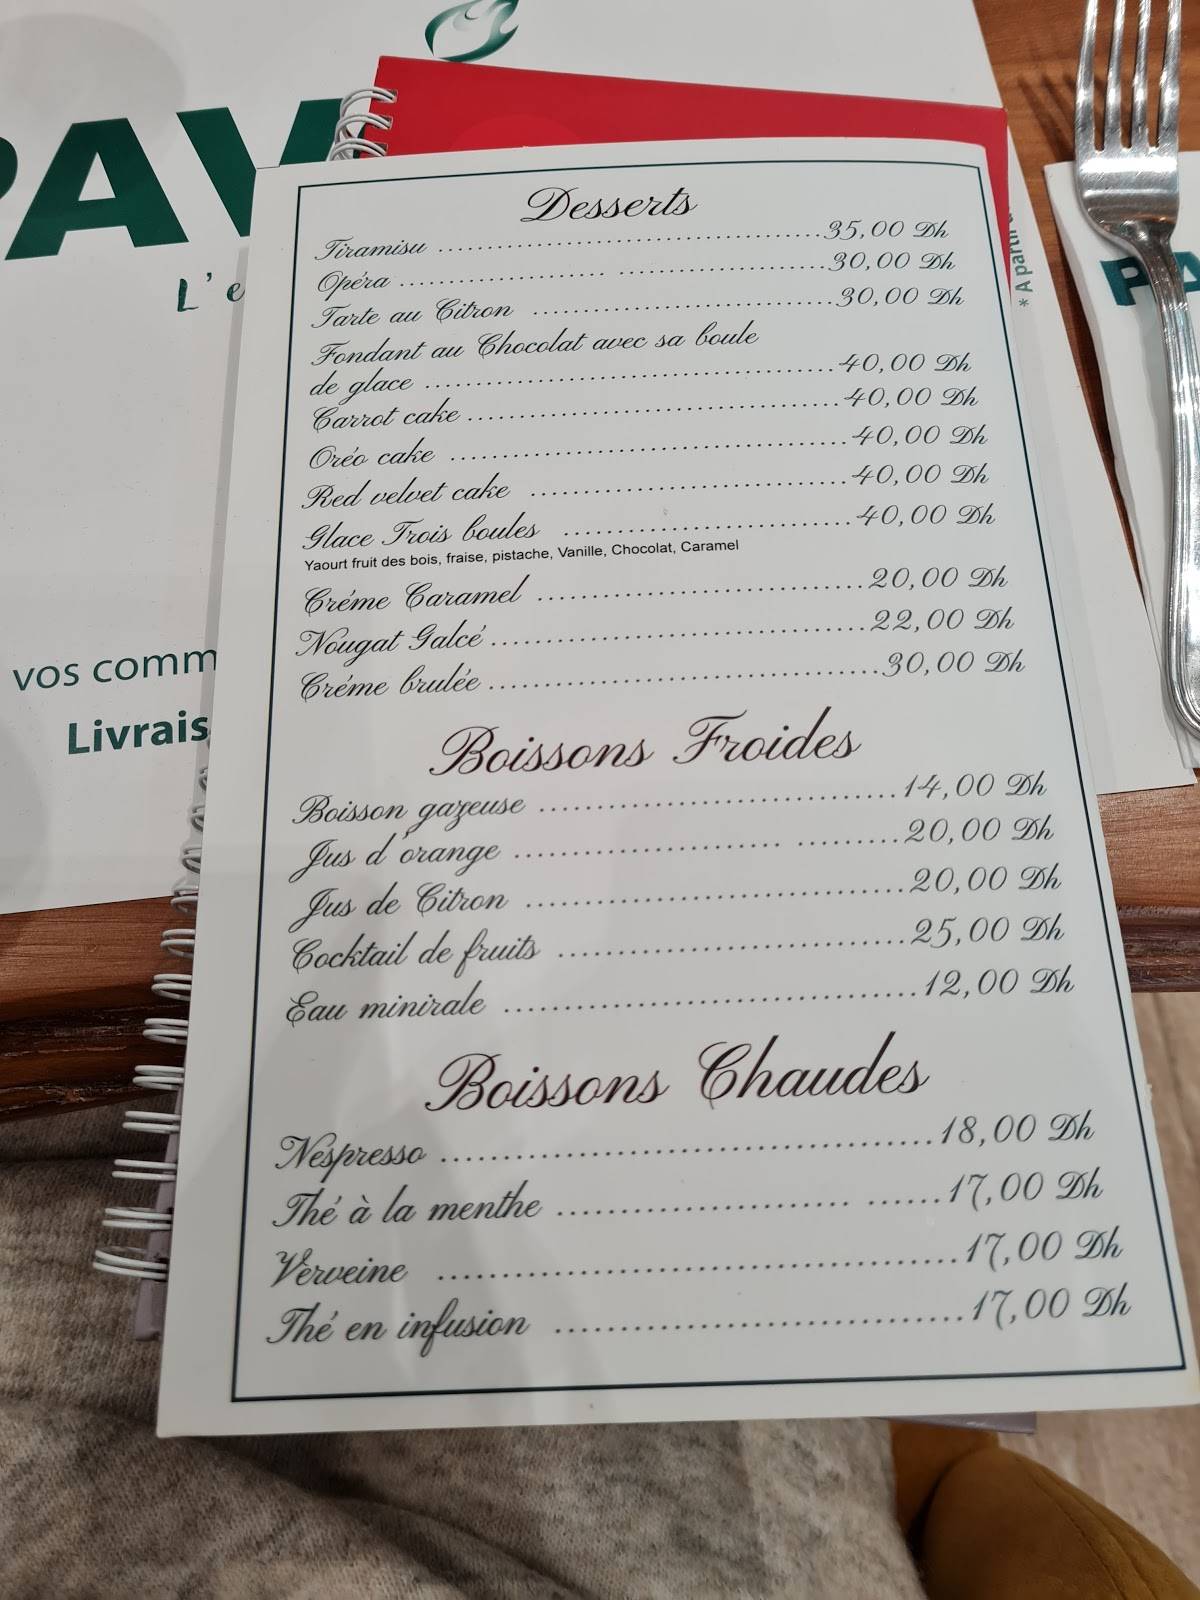 PAV
L'e
* A partir d
PA
vos comm
Livrais
Desserts
Tiramisu ........................................35,00 Dh
Opéra ........................................30,00 Dh
Tarte au Citron ........................................30,00 Dh
Fondant au Chocolat avec sa boule
de glace ........................................40,00 Dh
Carrot cake ........................................40,00 Dh
Oréo cake ........................................40,00 Dh
Red velvet cake ........................................40,00 Dh
Glace Trois boules ........................................40,00 Dh
Yaourt fruit des bois, fraise, pistache, Vanille, Chocolat, Caramel
Créme Caramel ........................................20,00 Dh
Nougat Galcé ........................................22,00 Dh
Créme brulée ........................................30,00 Dh
Boissons Froides
Boisson gazeuse ........................................14,00 Dh
Jus d'orange ........................................20,00 Dh
Jus de Citron ........................................20,00 Dh
Cocktail de fruits ........................................25,00 Dh
Eau minirale ........................................12,00 Dh
Boissons Chaudes
Néspresso ........................................18,00 Dh
Thé à la menthe ........................................17,00 Dh
Verveine ........................................17,00 Dh
Thé en infusion ........................................17,00 Dh